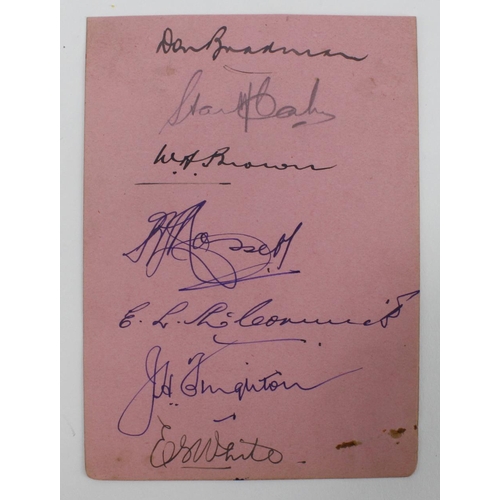 Don Bradman
Stan McCabe
W.A. Brown
Hassett
E. L. McCormick
J H Fingleton
E S White